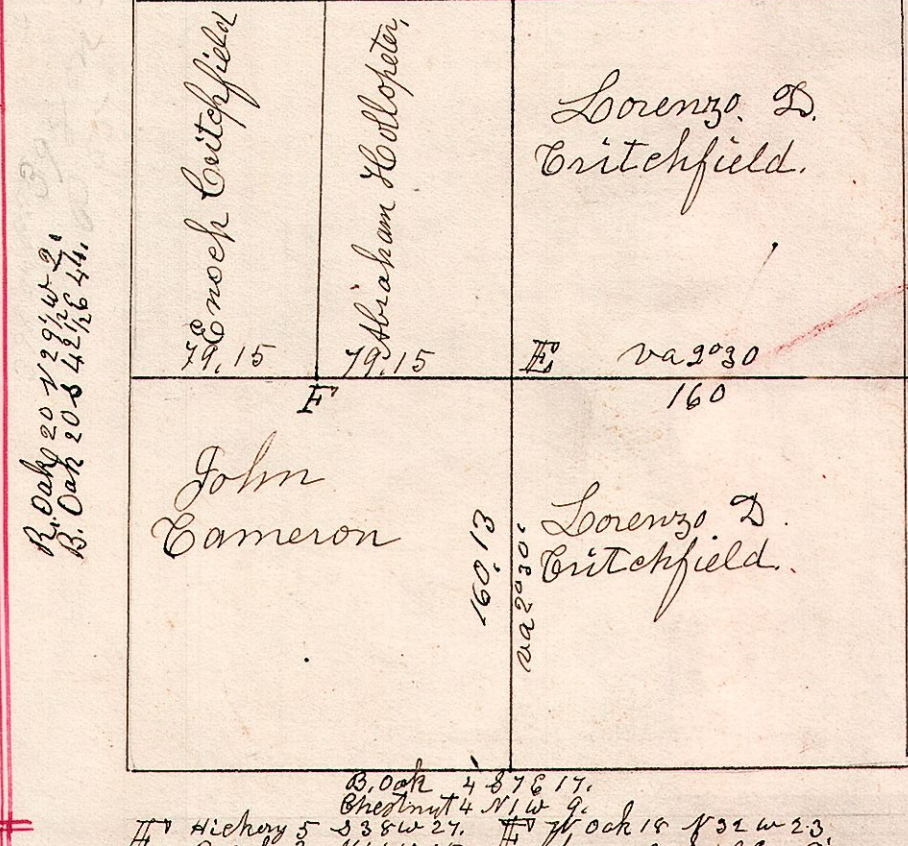 R. Oak 20 N 29½ W 9.
B. Oak 20 S 42½ E 44.
Enoch Critchfield
79.15
Abraham Hollopeter,
79.15
Lorenzo. D.
Critchfield.
E va 2°30
160
F
John
Cameron
160.13
va 2°30'
Lorenzo D.
Critchfield.
B. Oak 4 S 7 E 17.
Chestnut 4 N 1 W 9.
F Hickory 5 S 38 W 27. E W Oak 18 N 32 W 23.